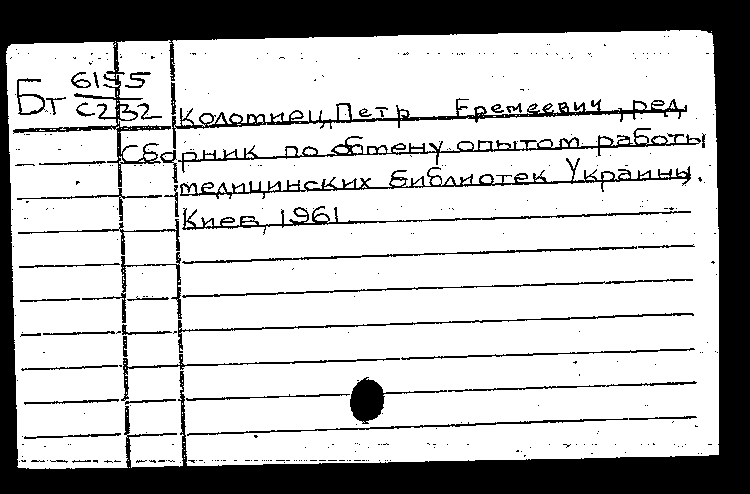 Бт 6155
С232
Коломиец, Петр Еремеевич, ред.
Сборник по обмену опытом работы
медицинских библиотек Украины.
Киев, 1961